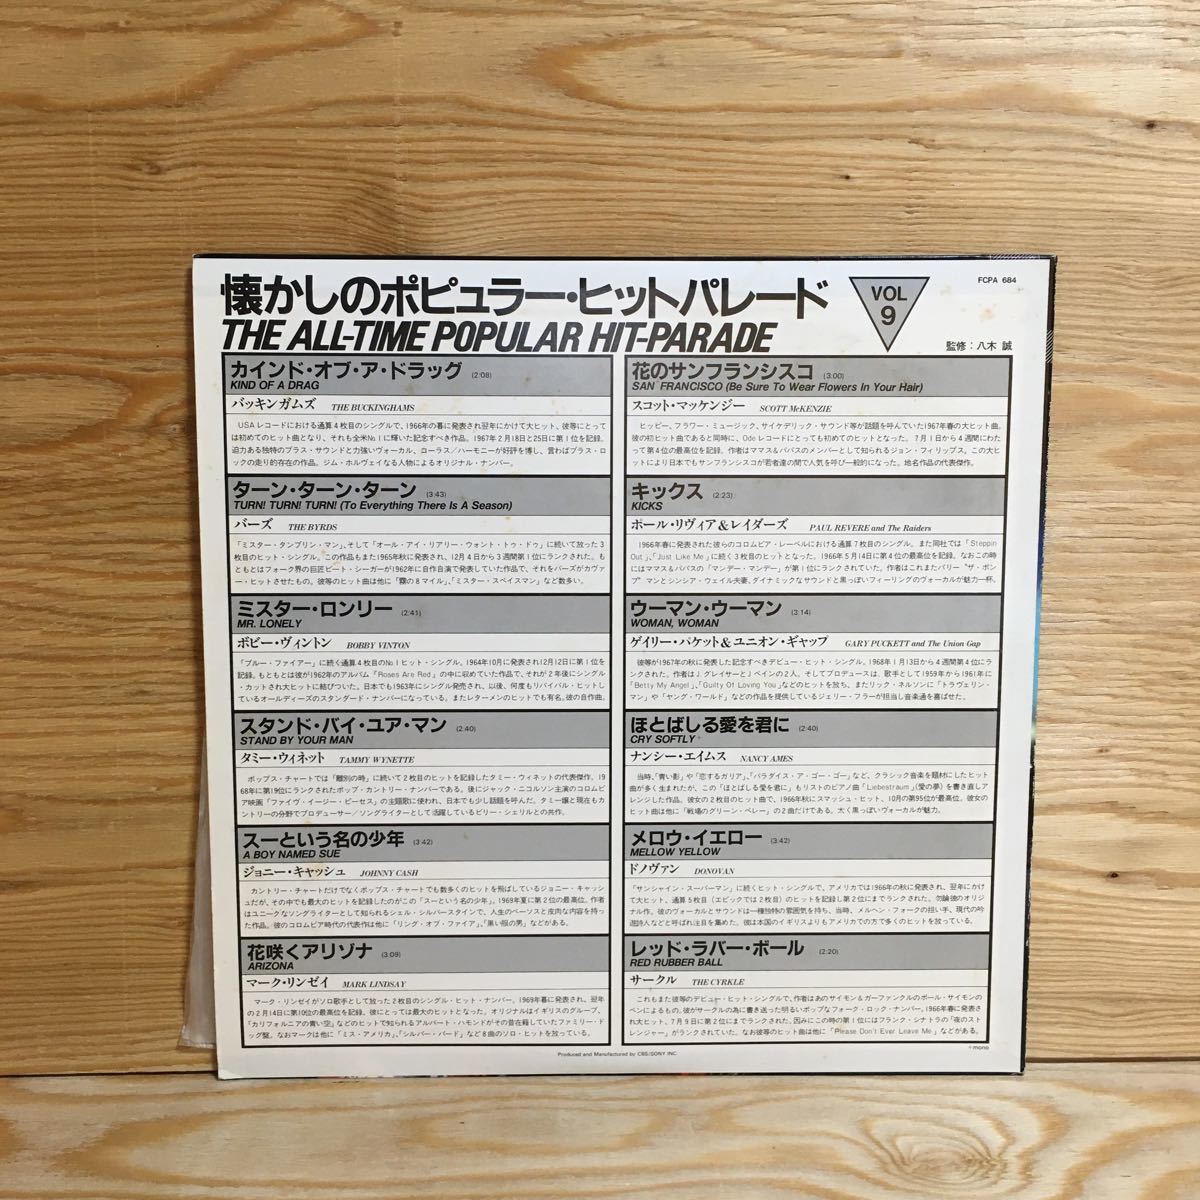 懐かしのポピュラー・ヒットパレード
THE ALL-TIME POPULAR HIT-PARADE
VOL
9
FCPA 684
監修:八木 誠
カインド・オブ・ア・ドラッグ (2:08)
KIND OF A DRAG
バッキンガムズ THE BUCKINGHAMS
USAレコードにおける通算4枚目のシングルで、1966年の暮に発表され翌年にかけて大ヒット、彼等にとって
は初めてのヒット曲となり、それも全米No.1に輝いた記念すべき作品。1967年2月18日と25日に第1位を記録。
迫力ある独特のブラス・サウンドと力強いヴォーカル、コーラス/ハーモニーが好評を博し、言わばブラス・ロ
ックの走り的存在の作品。ジム・ホルヴェイなる人物によるオリジナル・ナンバー。
ターン・ターン・ターン (3:43)
TURN! TURN! TURN! (To Everything There Is A Season)
バーズ THE BYRDS
「ミスター・タンブリン・マン」、そして「オール・アイ・リアリー・ウォント・トゥ・ドゥ」に続いて放った3
枚目のヒット・シングル。この作品もまた1965年秋に発表され、12月4日から3週間第1位にランクされた。も
ともとはフォーク界の巨匠ピート・シーガーが1962年に自作自演で発表していた作品で、それをバーズがカヴァ
ー・ヒットさせたもの。彼等のヒット曲は他に「霧の8マイル」、「ミスター・スペイスマン」など数多い。
ミスター・ロンリー (2:41)
MR. LONELY
ボビー・ヴィントン BOBBY VINTON
「ブルー・ファイアー」に続く通算4枚目のNo.1ヒット・シングル。1964年10月に発表され12月12日に第1位を
記録。もともとは彼が1962年のアルバム『Roses Are Red』の中に収めていた作品で、それが2年後にシング
ル・カットされ大ヒットに結びついた。日本でも1963年にシングル発売され、以後、何度もリバイバル・ヒットし
ているオールディーズのスタンダード・ナンバーになっている。またレターメンのヒットでも有名。彼の自作曲。
スタンド・バイ・ユア・マン (2:40)
STAND BY YOUR MAN
タミー・ウィネット TAMMY WYNETTE
ポップス・チャートでは「離別の時」に続いて2枚目のヒットを記録したタミー・ウィネットの代表傑作。19
68年に第19位にランクされたポップ・カントリー・ナンバーである。後にジャック・ニコルソン主演のコロムビ
ア映画『ファイヴ・イージー・ピーセス』の主題歌に使われ、日本でも少し話題を呼んだ。タミー嬢と現在もカ
ントリーの分野でプロデューサー/ソングライターとして活躍しているビリー・シェリルとの共作。
スーという名の少年 (3:42)
A BOY NAMED SUE
ジョニー・キャッシュ JOHNNY CASH
カントリー・チャートだけでなくポップス・チャートでも数多くのヒットを飛ばしているジョニー・キャッシ
ュだが、その中でも最大のヒットと記録したのがこの「スーという名の少年」。1969年夏に第2位の最高位。作者
はユニークなソングライターとして知られるシェル・シルバースタインで、人生のペーソスと皮肉な内容を持っ
た作品。彼のコロムビア時代の代表作は他に「リング・オブ・ファイア」、「黒い服の男」などがある。
花咲くアリゾナ (3:09)
ARIZONA
マーク・リンゼイ MARK LINDSAY
マーク・リンゼイがソロ歌手として放った2枚目のシングル・ヒット・ナンバー。1969年暮に発表され、翌年
の2月14日に第10位の最高位を記録。彼にとっては最大のヒットとなった。オリジナルはイギリスのグループ、
「カリフォルニアの青い空」などのヒットで知られるアルバート・ハモンドがその昔在籍していたファミリー・ド
ッグ盤。なおマークは他に「ミス・アメリカ」、「シルバー・バード」など8曲のソロ・ヒットを放っている。
花のサンフランシスコ (3:00)
SAN FRANCISCO (Be Sure To Wear Flowers In Your Hair)
スコット・マッケンジー SCOTT McKENZIE
ヒッピー、フラワー・ミュージック、サイケデリック・サウンド等が話題を呼んでいた1967年春の大ヒット曲。
彼の初ヒット曲であると同時に、Odeレコードにとっても初めてのヒットとなった。7月1日から4週間にわた
って第4位の最高位を記録。作者はママス&パパスのメンバーとして知られるジョン・フィリップス。この大ヒ
ットにより日本でもサンフランシスコが若者達の間で人気を呼び一般的になった。地名作品の代表傑作。
キックス (2:23)
KICKS
ポール・リヴィア&レイダーズ PAUL REVERE and The Raiders
1966年春に発表された彼らのコロムビア・レーベルにおける通算7枚目のシングル。また同社では「Steppin'
Out」、「Just Like Me」に続く3枚目のヒットとなった。1966年5月14日に第4位の最高位を記録。なおこの時
にはママス&パパスの「マンデー・マンデー」が第1位にランクされていた。作者はこれまたバリー“ザ・ボン
ブ”マンとシンシア・ウェイル夫妻、ダイナミックなサウンドと黒っぽいフィーリングのヴォーカルが魅力一杯。
ウーマン・ウーマン (3:14)
WOMAN, WOMAN
ゲイリー・パケット&ユニオン・ギャップ GARY PUCKETT and The Union Gap
彼等が1967年の秋に発売した記念すべきデビュー・ヒット・シングル。1968年1月13日から4週間第4位にラ
ンクされた。作者はJ.グレイサーとJペインの2人。そしてプロデュースは、歌手として1959年から1961年に
「Betty My Angel」、「Guilty Of Loving You」などのヒットを放ち、またリック・ネルソンに「トラヴェリン・
マン」や「ヤング・ワールド」などの作品を提供しているジェリー・フラーが担当し音楽通を喜ばせた。
ほとばしる愛を君に (2:40)
CRY SOFTLY
ナンシー・エイムス NANCY AMES
当時、「青い影」や「恋するガリア」、「パラダイス・ア・ゴー・ゴー」など、クラシック音楽を題材にしたヒット
曲が多く生まれたが、この「ほとばしる愛を君に」もリストのピアノ曲「Liebestraum」(愛の夢)を書き直しア
レンジした作品。彼女の2枚目のヒット曲で、1966年秋にスマッシュ・ヒット、10月の第95位が最高位。彼女の
ヒット曲は他に「戦場のグリーン・ベレー」の2曲だけである。太く黒っぽいヴォーカルが魅力。
メロウ・イエロー (3:42)
MELLOW YELLOW
ドノヴァン DONOVAN
「サンシャイン・スーパーマン」に続くヒット・シングルで、アメリカでは1966年の秋に発表され、翌年にかけ
て大ヒット、通算5枚目(エピックでは2枚目)のヒットを記録し第2位にまでランクされた。勿論彼のオリジ
ナル作。彼のヴォーカルとサウンドは一種独特の雰囲気を持ち、当時、メルヘン・フォークの担い手、現代の吟
遊詩人などと呼ばれ注目を集めた。彼は本国のイギリスよりもアメリカでの方で多くのヒットを放っている。
レッド・ラバー・ボール (2:20)
RED RUBBER BALL
サークル THE CYRKLE
これもまた彼等のデビュー・ヒット・シングルで、作者はあのサイモン&ガーファンクルのポール・サイモンの
ペンによるもの。彼がサークルの為に書き送った明るいポップなフォーク・ロック・ナンバー。1966年春に発表さ
れ大ヒット、7月9日に第2位にまでランクされた。因みにこの時の第1位にはフランク・シナトラの「夜のスト
レンジャー」がランクされていた。なお彼等のヒット曲は他に「Please Don't Ever Leave Me」などがある。
+mono
Produced and Manufactured by CBS/SONY INC.